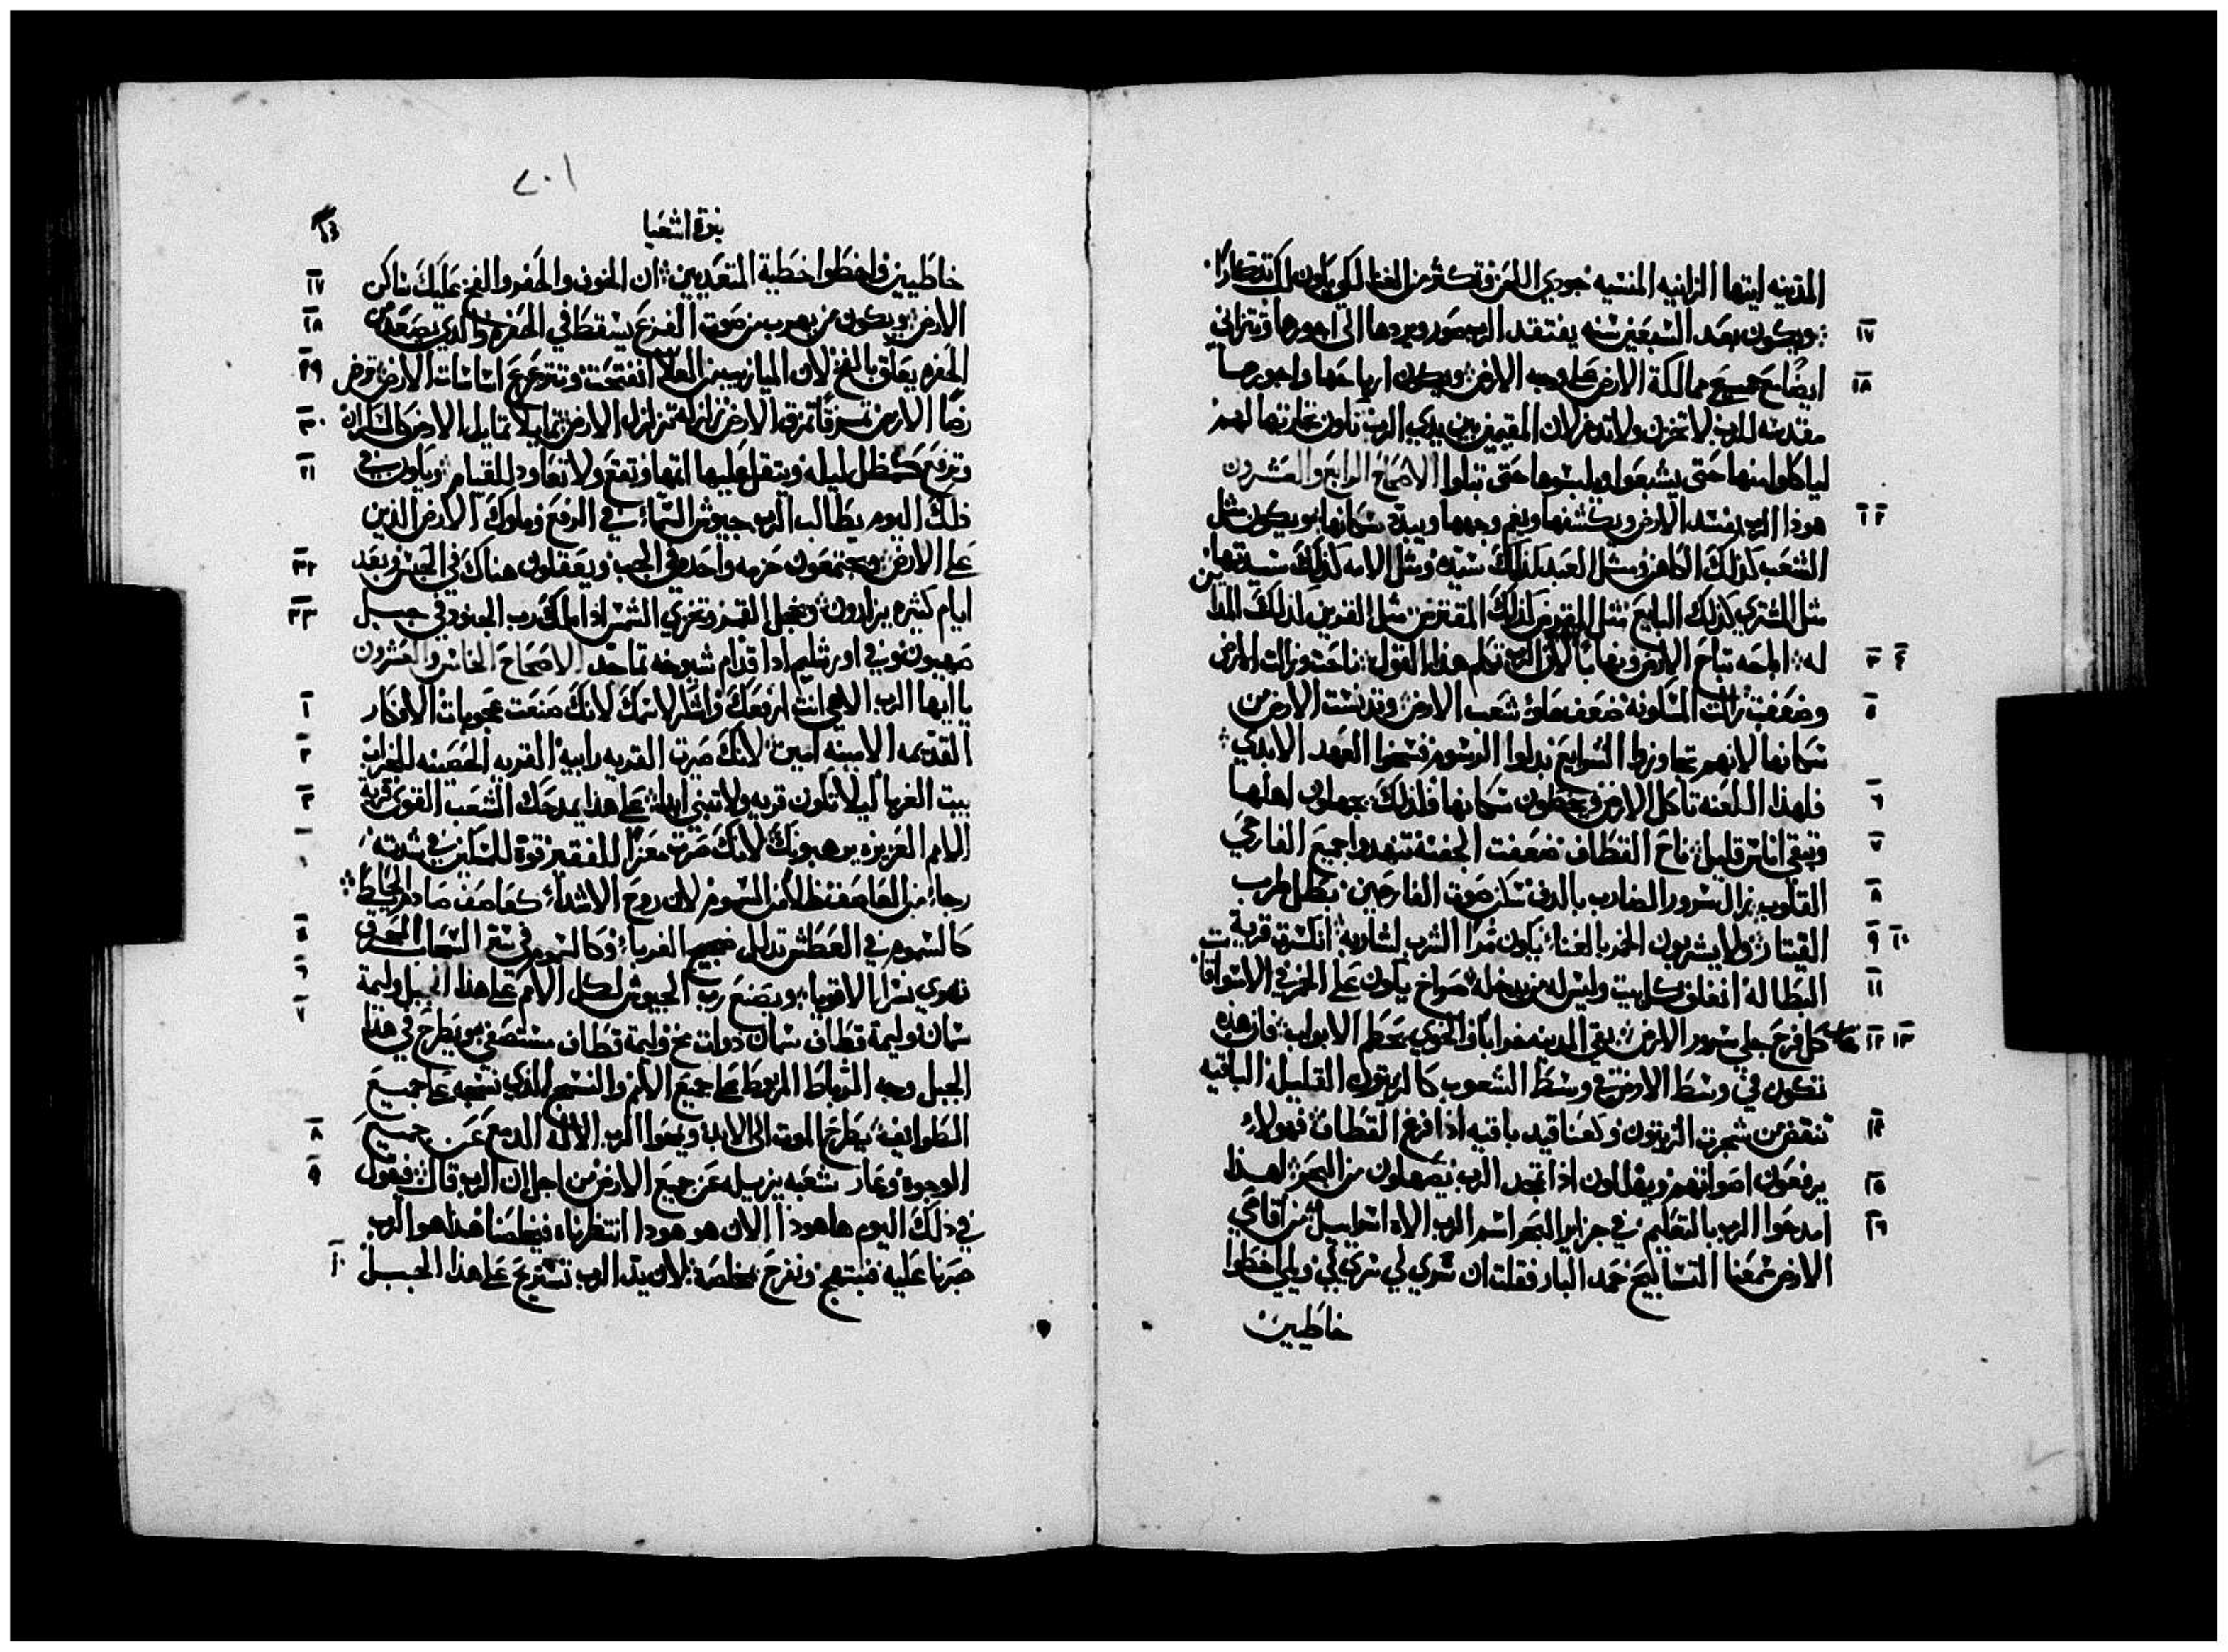 المدينه ايتها الزانيه المنسيه جودي اللحن وتكثر من الغنا لكي يكون لك تذكارًا
ويكون بعد السبعين سنه يفتقد الرب صور ويردها الى اجورها وتزاني
ايضًا مع جميع ممالكة الارض على وجه الارض ويكون ارباحها واجورها
مقدسه للرب لا تخزن ولا تدخر لان المقيمين بين يدي الرب تكون تجارتها لهم
لياكلوا منها حتى يشبعوا ويلبسوها حتى تبلوا الاصحاح الرابع والعشرون
هوذا الرب يفسد الارض ويكشفها ويغم وجهها ويبدد سكانها ويكون مثل
الشعب كذلك الكاهن ومثل العبد كذلك سيده ومثل الامه كذلك سيدتها
مثل المشتري كذلك البايع مثل المقرض كذلك المقترض مثل الغريم كذلك المدا
ين
له الرب تكلم هذا القول ناحت وزالت الارض
وضعفت المسكونه ضعف علو شعب الارض وتدنست الارض من
سكانها لانهم تجاوزوا الشرايع بدلوا الرسوم فسخوا العهد الابدي
فلهذا اللعنه تاكل الارض ويخطون سكانها فلذلك يجهلون اهلها
وتبقي اناس قليل ناح القطاف ضعفت الجفنه تنهدوا جميع الفارحي
القلوب زال سرور الضارب بالدف سكن صوت الفارحين بطل طرب
القيتار ولا يشربون الخمر بالغناء يكون مرًا الشرب لشاربه انكسرت قرية
البطاله انغلق كل بيت وليس له من يدخله صراخ يكون على الخمر في الاسواق
كل فرح جلي سرور الارض بقي المدينه خرابًا والخوي يحطم الابواب فان هذه
تتكون في وسط الارض في وسط الشعوب كالزيتون القليله الباقيه
تنتفض من شجرت الزيتون وكعناقيد باقيه اذا فرغ القطاف فهولاء
يرفعون اصواتهم ويهللون اذا تمجد الرب يصهلون من البحر لهذا
امدحوا الرب بالتعليم في جزاير البحر اسم الرب الاه اسراييل من اقاصي
الارض سمعنا التسابيح حمد البار فقلت ان سري لي سري لي ويلي اخطوا
خاطيين
٢٠١
نبوة اشعيا
خاطيين واخطوا خطية المتعديين ان الخوف والحفر والفخ عليك ساكن
الارض ويكون من يهرب من صوت الفزع يسقط في الحفره والذي يصعد من
الحفره يعلق بالفخ لان الميازيب من العلا انفتحت وتتزعزع اساسات الارض ترض
رضًا الارض تمزقًا تمزق الارض تزلزلًا تتزلزل الارض تمايلًا تمايل الارض كالسكران
وترفع كمظل ليله ويتقل عليها اتمها وتقع ولا تعاود للقيام ويكون في
ذلك اليوم يطالب الرب جيوش السماء في الرفع وملوك الارض الذين
على الارض ويجتمعون حزمه واحده في الجب ويعقلون هناك في الحبس وبعد
ايام كثيره يزارون ويخجل القمر وتخزي الشمس اذا ملك رب الجنود في جبل
صهيون وفي اورشليم اذا قدام شيوخه تماجد الاصحاح الخامس والعشرون
يا ايها الرب الاهي انت ارفعك واشكر لاسمك لانك صنعت عجوبات الافكار
القديمه الامينه امين لانك صيرت القريه رابيه القريه الحصينه للخراب
بيت الغربا ليلا تكون قريه ولا تبني ابدًا على هذا يمدحك الشعب القوي قرية
الامم العزيزه يرهبونك لانك صرت معزًا للفقير قوة للمسكين في شدته
رجاء من العاصف ظلا من السموم لان روح الاشداء كعاصف صادم الحايط
كالسموم في العطش تذلل ضجيج الغرباء وكالسموم في ستر السحاب المحرق
تهوي نسرا الاقوياء ويصنع رب الجيوش لكل الامم على هذا الجبل وليمة
سمان وليمة قطاف سمان دوات مخ وليمة قطاف مستصفي ويطرح في هذا
الجبل وجه الرباط المربوط على جميع الامم والنسيج الذي نسجه على جميع
الطوايف يطرح الموت الى الابد ويمحوا الرب الاله الدمع عن جميع
الوجوه وعار شعبه يزيله عن جميع الارض من اجل ان الرب قال فيقول
في ذلك اليوم ها هوذا الان هو هودا انتظرناه فيخلصنا هذا هو الرب
صبرنا عليه فنبتهج ونفرح بخلصه لان يد الرب تستريح على هذا الجبل